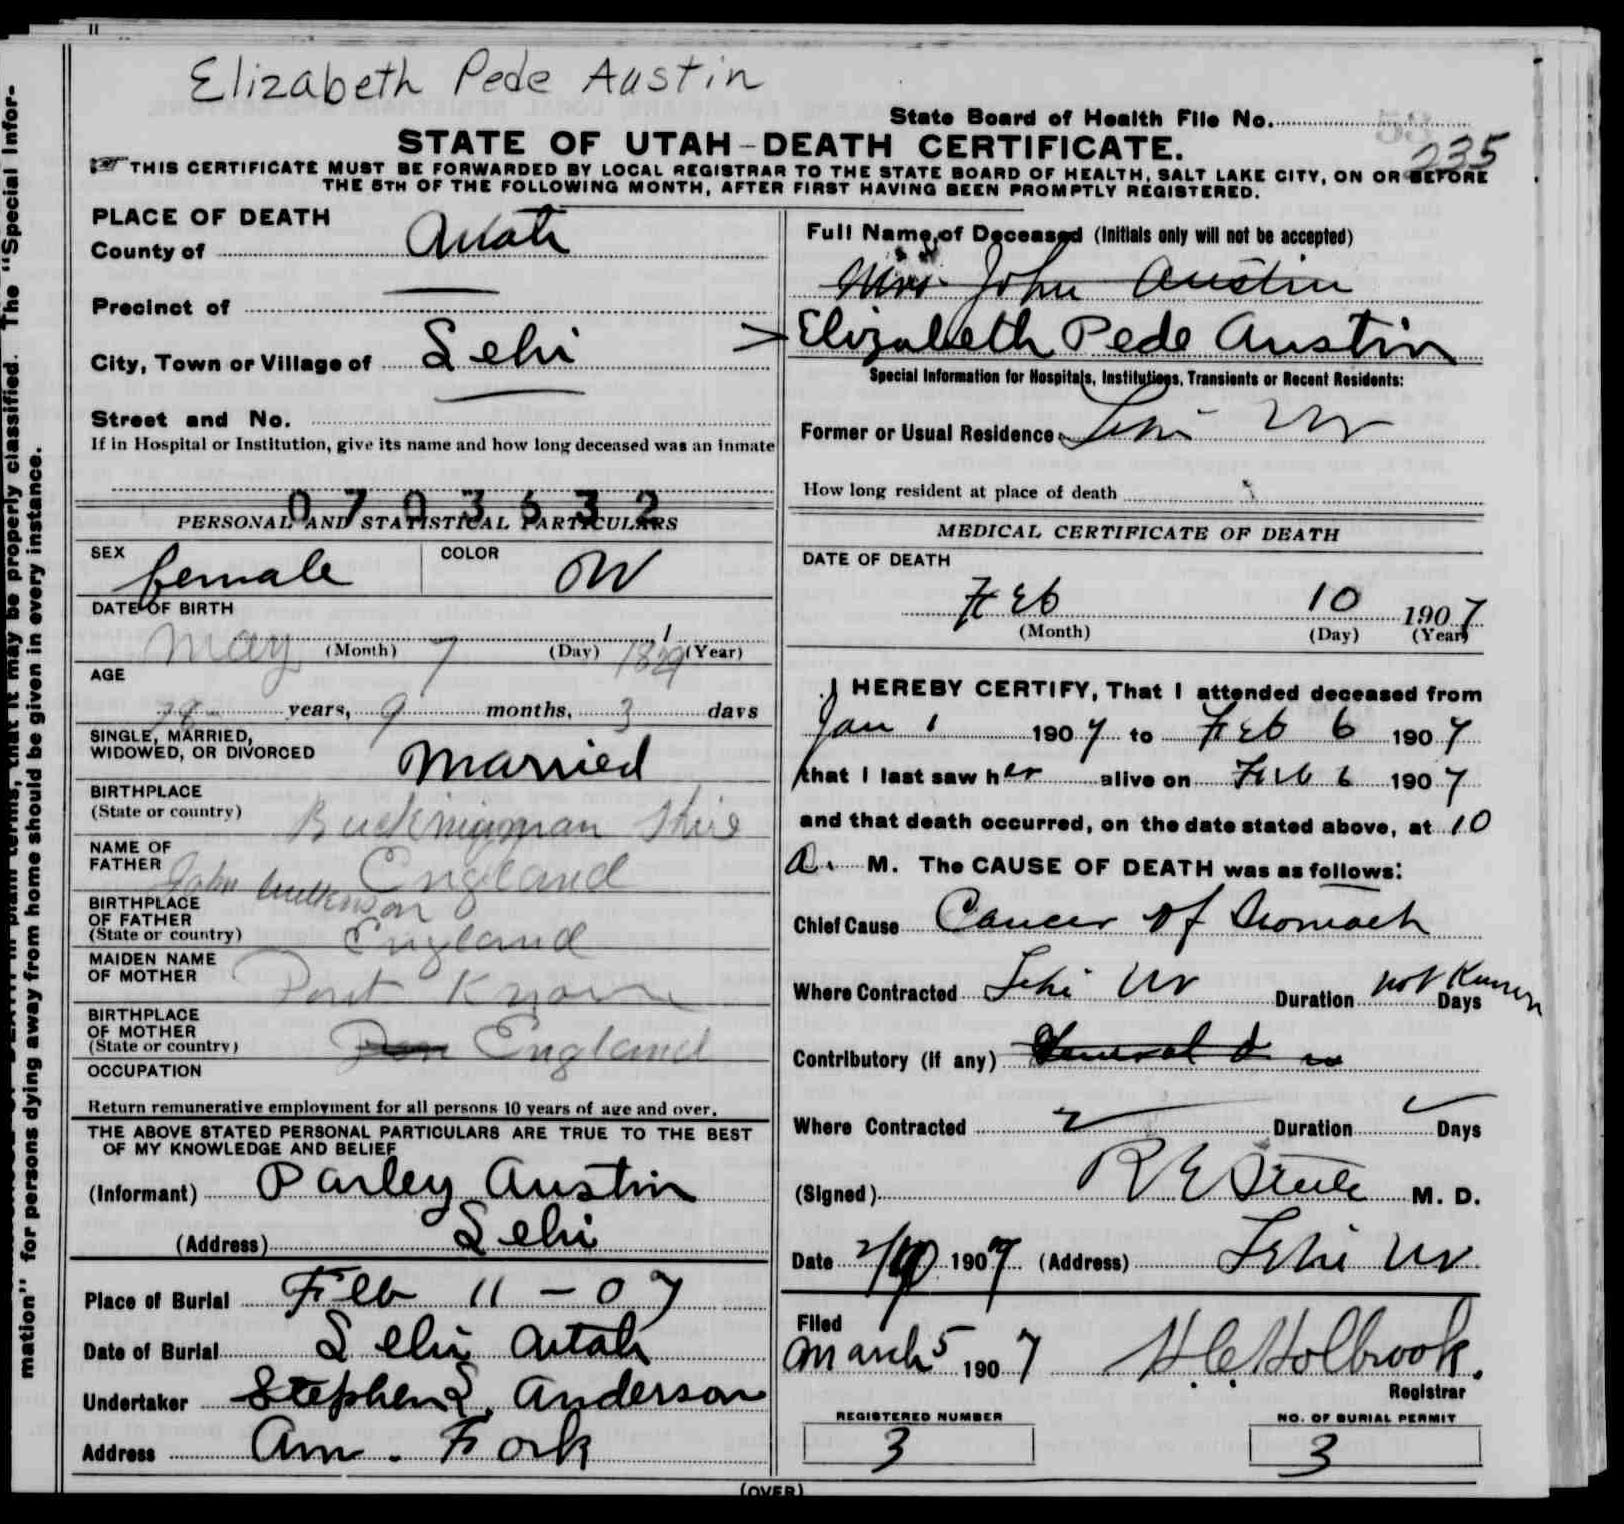 Elizabeth Pede Austin
State Board of Health File No.
235
STATE OF UTAH-DEATH CERTIFICATE.
THIS CERTIFICATE MUST BE FORWARDED BY LOCAL REGISTRAR TO THE STATE BOARD OF HEALTH, SALT LAKE CITY, ON OR BEFORE
THE 5TH OF THE FOLLOWING MONTH, AFTER FIRST HAVING BEEN PROMPTLY REGISTERED.
PLACE OF DEATH
County of Utah
Precinct of
City, Town or Village of Lehi
Street and No.
If in Hospital or Institution, give its name and how long deceased was an inmate
0703532
PERSONAL AND STATISTICAL PARTICULARS
SEX female COLOR W
DATE OF BIRTH
May 7 1829
(Month) (Day) (Year)
AGE
78 years, 9 months, 3 days
SINGLE, MARRIED,
WIDOWED, OR DIVORCED Married
BIRTHPLACE
(State or country) Buckingman Shire
England
NAME OF
FATHER John
BIRTHPLACE
OF FATHER
(State or country) England
MAIDEN NAME
OF MOTHER Dont Know
BIRTHPLACE
OF MOTHER
(State or country) England
OCCUPATION
Return remunerative employment for all persons 10 years of age and over.
THE ABOVE STATED PERSONAL PARTICULARS ARE TRUE TO THE BEST
OF MY KNOWLEDGE AND BELIEF
(Informant) Parley Austin
(Address) Lehi
Place of Burial Feb 11 - 07
Date of Burial Lehi Utah
Undertaker Stephen L. Anderson
Address Am. Fork
Full Name of Deceased (Initials only will not be accepted)
Mrs. John Austin
Elizabeth Pede Austin
Special Information for Hospitals, Institutions, Transients or Recent Residents:
Former or Usual Residence Lehi Ut
How long resident at place of death
MEDICAL CERTIFICATE OF DEATH
DATE OF DEATH
Feb 10 1907
(Month) (Day) (Year)
I HEREBY CERTIFY, That I attended deceased from
Jan 1 1907 to Feb 6 1907
that I last saw her alive on Feb 6 1907
and that death occurred, on the date stated above, at 10
a. M. The CAUSE OF DEATH was as follows:
Chief Cause Cancer of Stomach
Where Contracted Lehi Ut Duration not Known Days
Contributory (if any)
Where Contracted Duration Days
(Signed) R E Steele M. D.
Date 2/10 1907 (Address) Lehi Ut
Filed
March 5 1907 H.C. Holbrook.
Registrar
REGISTERED NUMBER
3
NO. OF BURIAL PERMIT
3
(OVER)
mation" for persons dying away from home should be given in every instance.
that it may be properly classified. The "Special Infor-